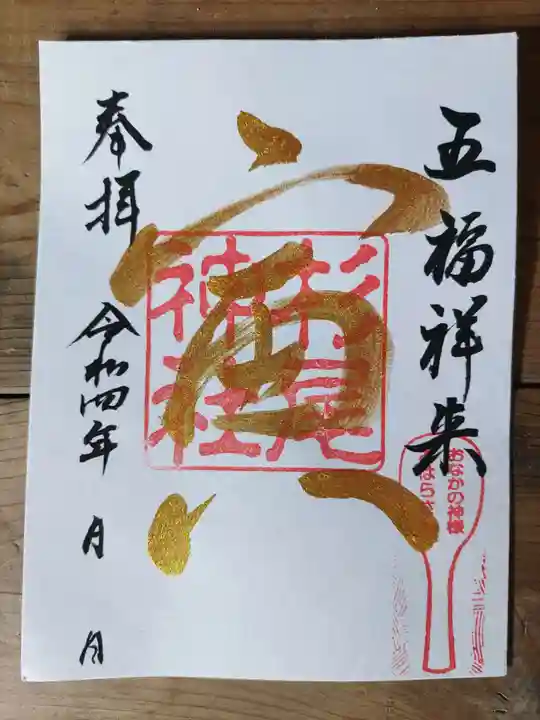 五福祥来
寅
杉尾
神社
奉拝
令和四年 月 日
おなかの神様
はらさ